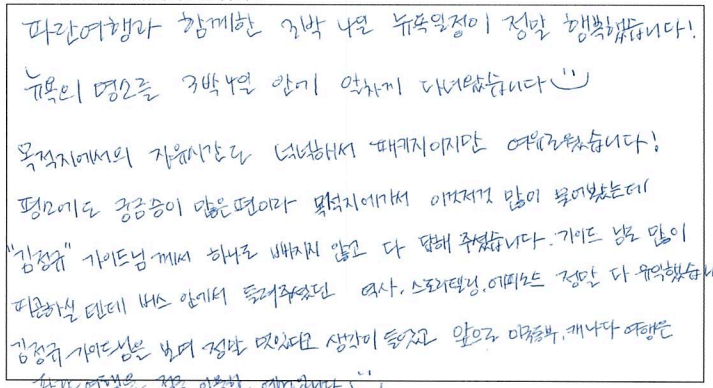 파란여행과 함께한 3박 4일 뉴욕일정이 정말 행복했습니다!
뉴욕의 명소를 3박4일 안에 알차게 다녀왔습니다
목적지에서의 자유시간도 넉넉해서 패키지이지만 여유로웠습니다!
평소에도 궁금증이 많은편이라 목적지에가서 이것저것 많이 물어봤는데
"김정규" 가이드님께서 하나도 빠지지 않고 다 답해 주셨습니다. 가이드 님도 많이
피곤하실 텐데 버스 안에서 들려주셨던 역사, 스토리텔링, 에피소드 정말 다 유익했습니
김정규 가이드님은 보며 정말 멋있다고 생각이 들었고 앞으로 미국동부, 캐나다 여행은
파란여행을 적극 이용할 예정입니다